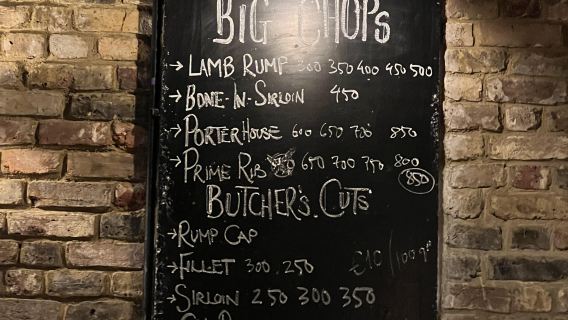 BIG CHOPs
→ LAMB RUMP 300 350 400 450 500
→ BONE-IN-SIRLOIN 450
→ PORTERHOUSE 600 650 700 850
→ PRIME RIB 650 700 750 800
850
BUTCHER'S CUTS
→ RUMP CAP
→ FILLET 300 250 £10/100g
→ SIRLOIN 250 300 350